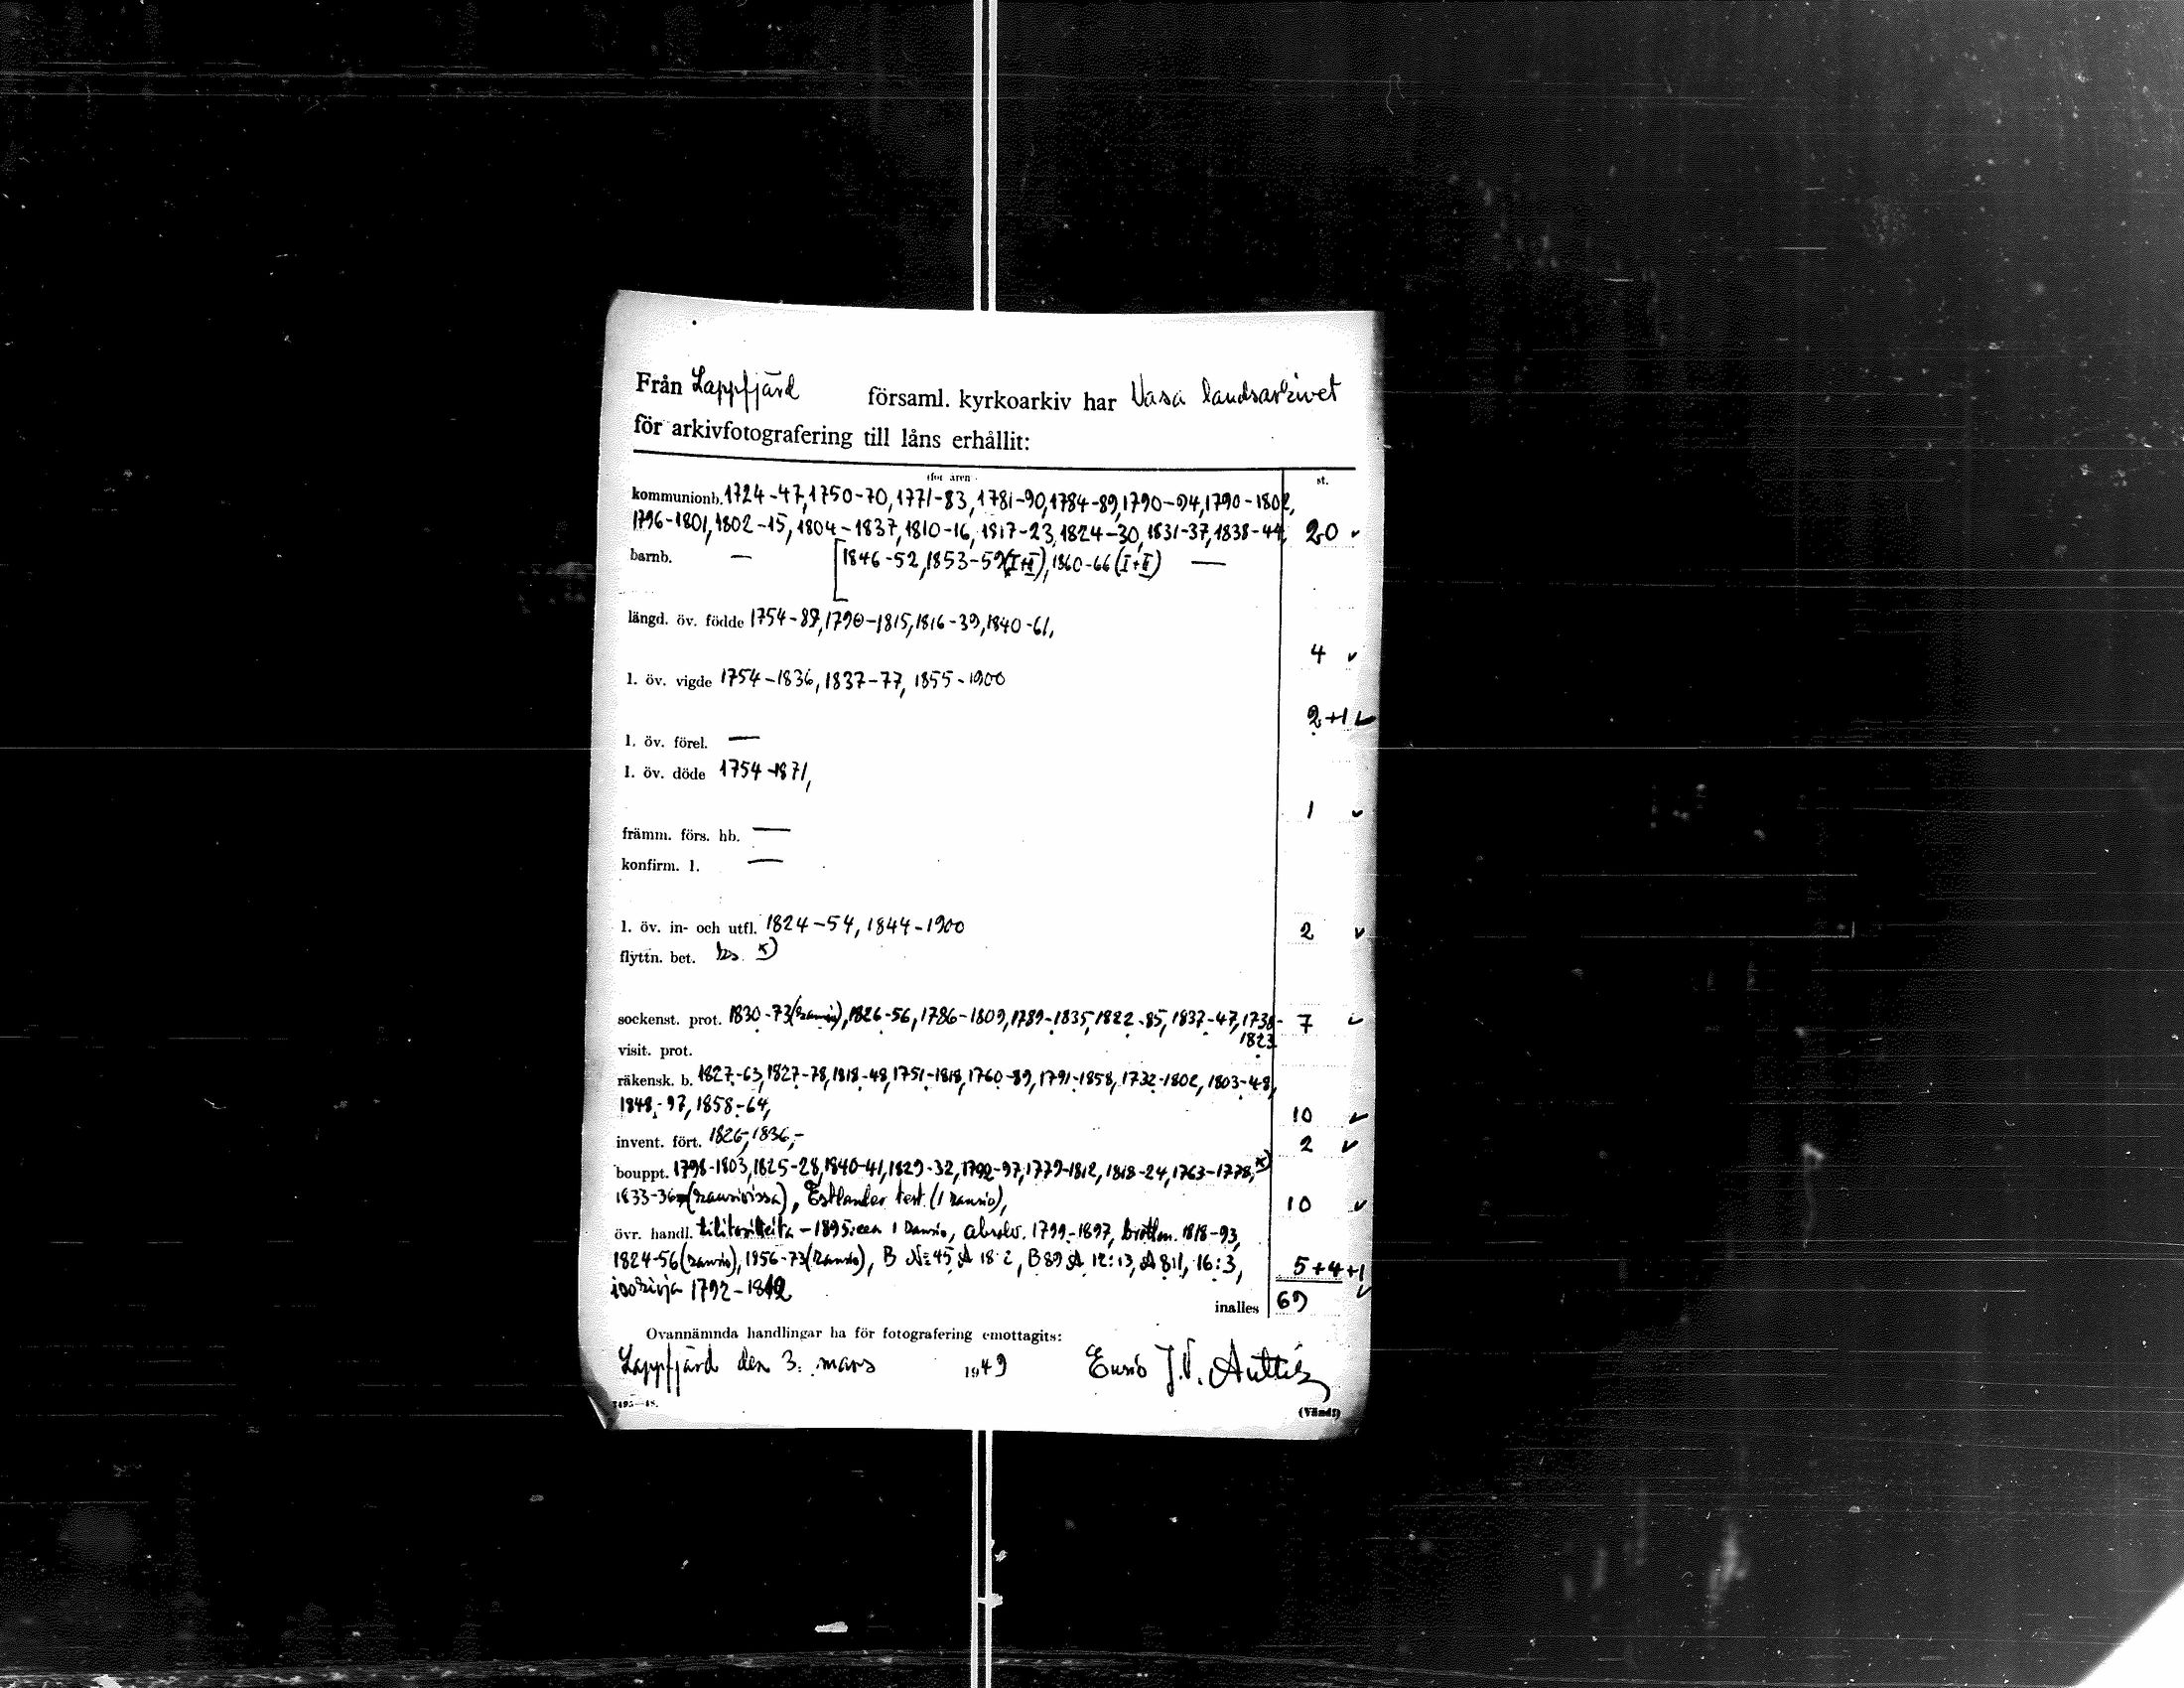 Från Lappfjärd församl. kyrkoarkiv har Vasa landsarkivet
för arkivfotografering till låns erhållit:
(för åren) st.
kommunionb. 1724-47, 1750-70, 1771-83, 1781-90, 1784-89, 1790-94, 1790-1802,
1796-1801, 1802-15, 1804-1837, 1810-16, 1817-23, 1824-30, 1831-37, 1838-44, 20 ✓
barnb. — [1846-52, 1853-59 (I+II), 1860-66 (I+II) —
längd. öv. födde 1754-89, 1790-1815, 1816-39, 1840-61,
4 ✓
l. öv. vigde 1754-1836, 1837-77, 1855-1900
2+1 ✓
l. öv. förel. —
l. öv. döde 1754-1871,
1 ✓
främm. förs. hb. —
konfirm. l. —
l. öv. in- och utfl. 1824-54, 1844-1900 2 ✓
flyttn. bet. x)
sockenst. prot. 1830-73 (kansio), 1826-56, 1786-1809, 1789-1835, 1822-85, 1837-47, 1738- 7 ✓
1823
visit. prot.
räkensk. b. 1827-63, 1827-78, 1818-48, 1751-1818, 1760-89, 1791-1858, 1732-1802, 1803-48,
1848-97, 1858-64, 10 ✓
invent. fört. 1826, 1836,- 2 ✓
bouppt. 1798-1803, 1825-28, 1840-41, 1829-32, 1792-97, 1779-1812, 1818-24, 1763-1778, x)
1833-36 (kansioissa), Estlander test. (1 kansio), 10 ✓
övr. handl. tilitositteita -1895:een 1 kansio, 1799-1897, 1818-93,
1824-56 (kansio), 1856-73 (kansio), B No 45 A 18 2, B 89 A 12:13, A 8:11, 16:3, 5+4+1
isokirja 1792-1812 ✓
inalles 69
Ovannämnda handlingar ha för fotografering emottagits:
Lappfjärd den 3. mars 1949 Eunō J.V. Anttila
7495—48. (Vänd!)